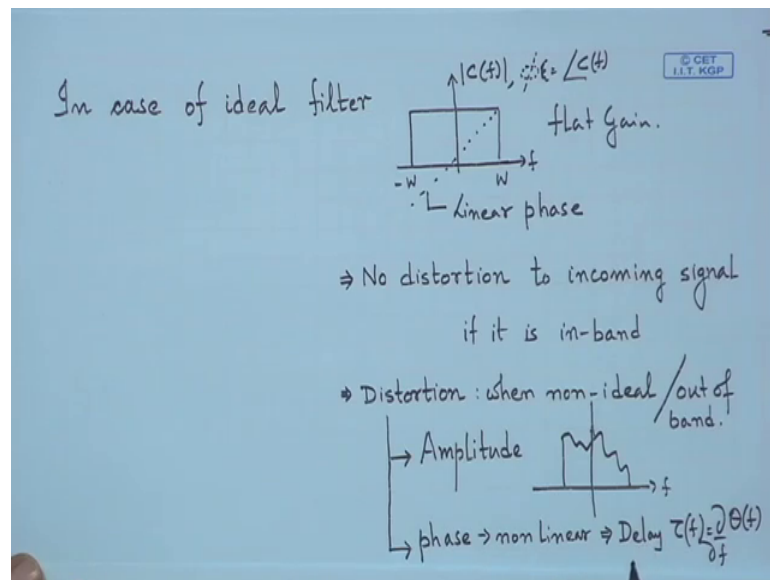 |C(f)|, = ∠C(f)
© CET
I.I.T. KGP
In case of ideal filter
flat Gain.
f
-W
W
Linear phase
⇒ No distortion to incoming signal
if it is in-band
⇒ Distortion : when non-ideal / out of
band.
→ Amplitude
f
→ phase → non linear ⇒ Delay τ(f) = ∂/∂f θ(f)